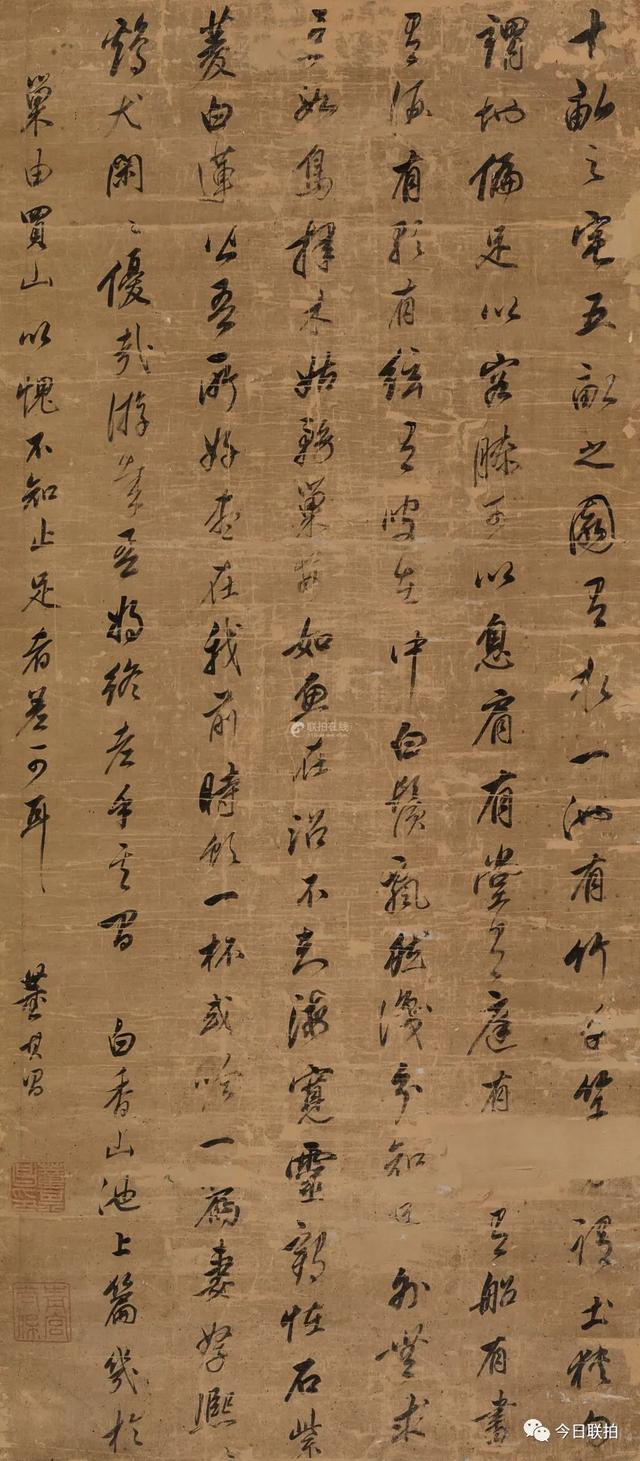 十畝之宅五畝之園有水一池有竹千竿謂土狹勿
謂地偏足以容膝可以息肩有堂有庭有有船有書
有酒有歌有絃有叟在中白鬚飄然識分知足外無求
焉如鳥擇木姑務巢安如魚在沼不知海寬靈鶴怪石紫
菱白蓮皆吾所好盡在我前時飲一杯或吟一篇妻孥熙〻
雞犬閑〻優哉游哉吾將終老乎其間 白香山池上篇幾於
巢由買山以愧不知止足者差可耳 董其昌
联拍在线
今日联拍